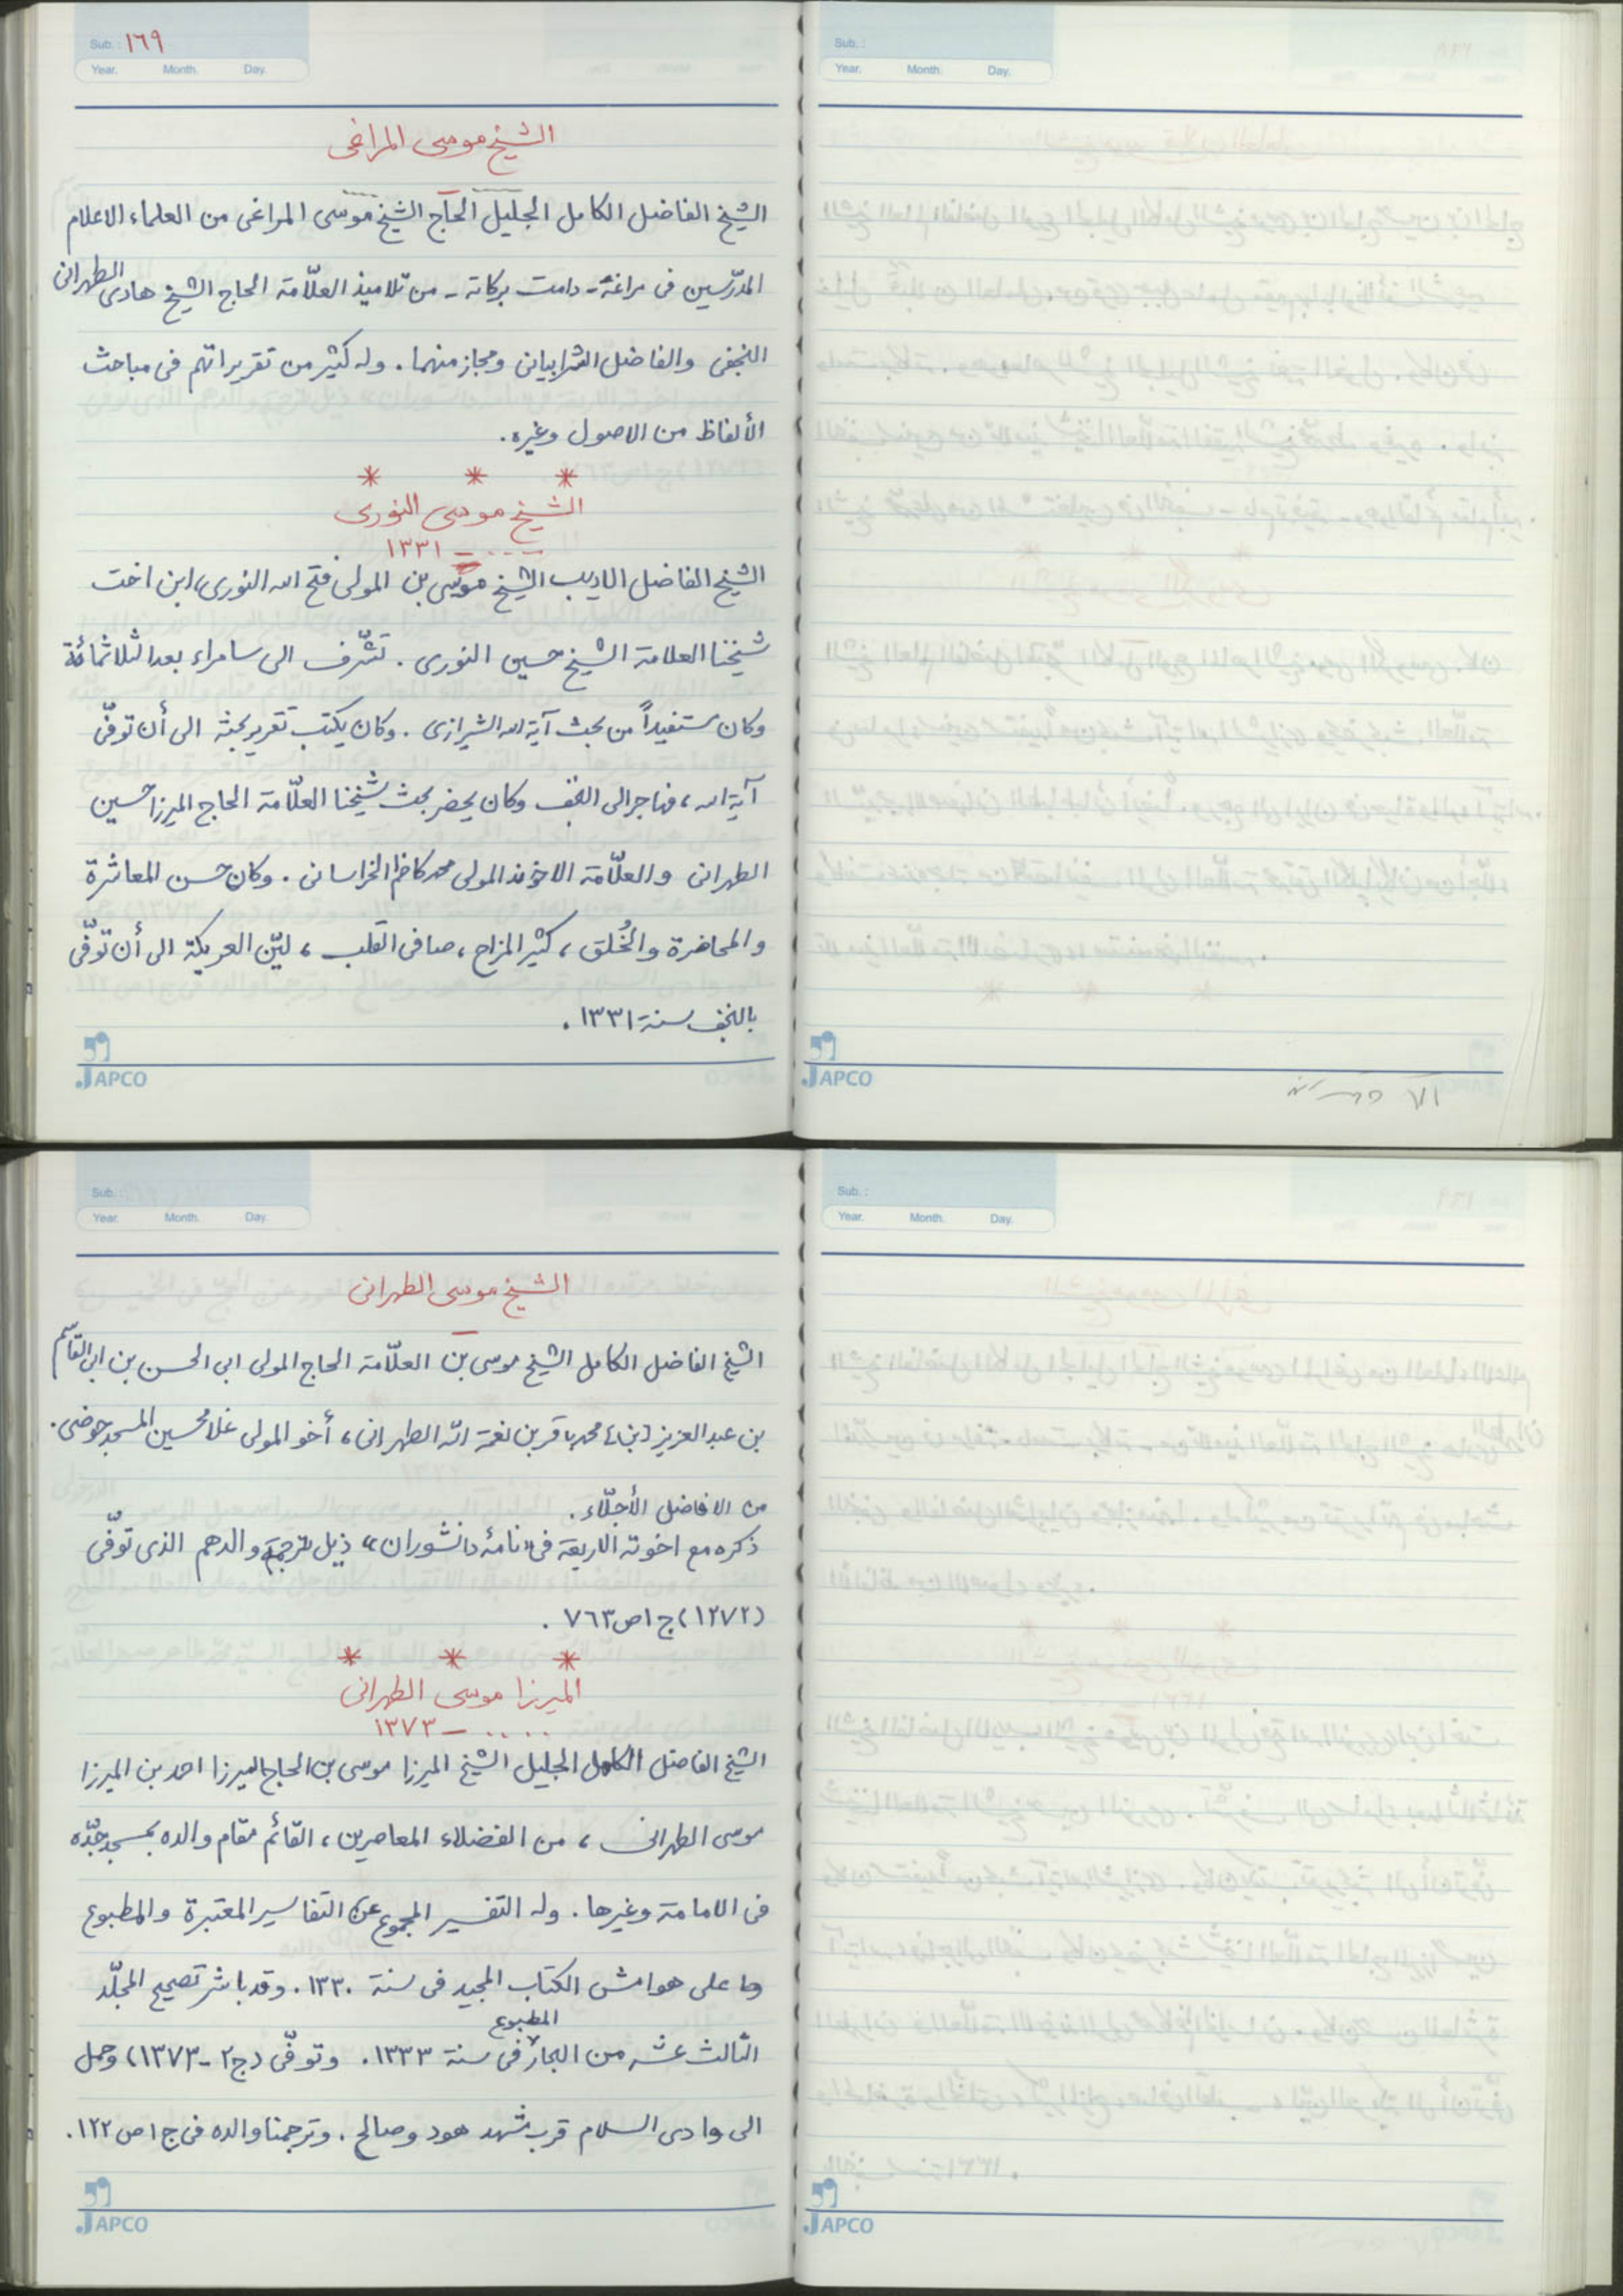 Sub. : ١٦٩
Year. Month. Day.
الشيخ موسى المراغى
الشيخ الفاضل الكامل الجليل الحاج الشيخ موسى المراغى من العلماء الاعلام
المدرّسين فى مراغة - دامت بركاته - من تلاميذ العلّامة الحاج الشيخ هادى الطهرانى
النجفى والفاضل الشرابيانى ومجاز منهما . وله كثير من تقريراتهم فى مباحث
الألفاظ من الاصول وغيره .
* * *
الشيخ موسى النورى
.... - ١٣٣١
الشيخ الفاضل الاديب الشيخ موسى بن المولى فتح الله النورى، ابن اخت
شيخنا العلامة الشيخ حسين النورى . تشرّف الى سامراء بعد الثلاثمائة
وكان مستفيداً من بحث آية الله الشيرازى . وكان يكتب تقرير بحثه الى أن توفّى
آية الله ، فهاجر الى النجف وكان يحضر بحث شيخنا العلّامة الحاج الميرزا حسين
الطهرانى والعلّامة الاخوند المولى محمد كاظم الخراسانى . وكان حسن المعاشرة
والمحاضرة والخُلق ، كثير المزاح ، صافى القلب ، ليّن العريكة الى أن توفّى
بالنجف سنة ١٣٣١ .
JAPCO
Sub. :
Year. Month. Day.
JAPCO
Sub. :
Year. Month. Day.
الشيخ موسى الطهرانى
الشيخ الفاضل الكامل الشيخ موسى بن العلّامة الحاج المولى ابى الحسن بن ابى القاسم
بن عبد العزيز [بن] محمد باقر بن نعمة الله الطهرانى ، أخو المولى غلامحسين المسجدحوضى .
من الافاضل الأجلّاء .
ذكره مع اخوته الاربعة فى «نامۀ دانشوران» ذيل ترجمة والدهم الذى توفّى
(١٢٧٢) ج ١ ص ٧٦٣ .
* * *
الميرزا موسى الطهرانى
.... - ١٣٧٣
الشيخ الفاضل الكامل الجليل الشيخ الميرزا موسى بن الحاج الميرزا احمد بن الميرزا
موسى الطهرانى ، من الفضلاء المعاصرين ، القائم مقام والده بمسجد جدّه
فى الامامة وغيرها . وله التفسير المجموع عن التفاسير المعتبرة والمطبوع
على هوامش الكتاب المجيد فى سنة ١٣٣٠ . وقد باشر تصحيح المجلّد
الثالث عشر من البحار المطبوع فى سنة ١٣٣٣ . وتوفّى (ج ٢ - ١٣٧٣) وحمل
الى وادى السلام قرب مشهد هود وصالح . وترجمنا والده فى ج ١ ص ١٢٢ .
JAPCO
Sub. :
Year. Month. Day.
JAPCO